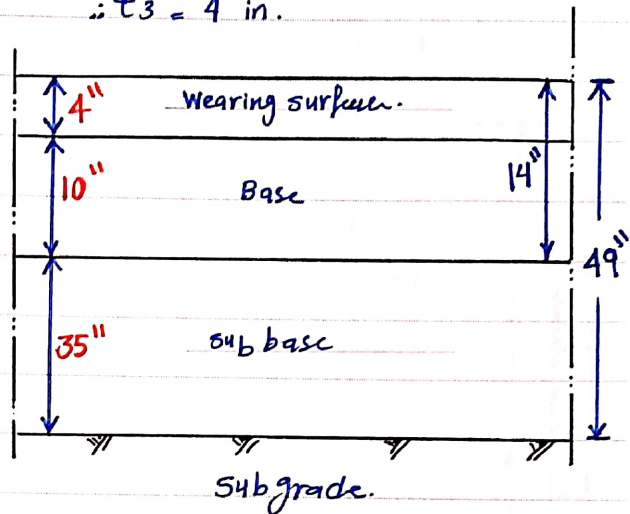 ∴ t3 = 4 in.
4" Wearing surface.
10" Base 14"
49"
35" sub base
Subgrade.